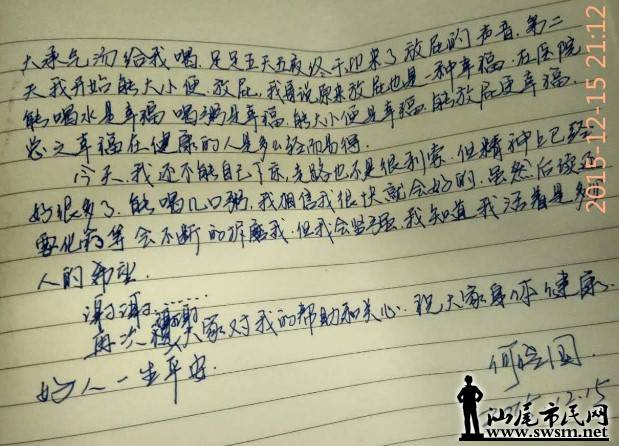 大承气汤给我喝.足足五天五夜终于迎来了放屁的声音.第二
天我开始能大小便.放屁.我再说原来放屁也是一种幸福.在医院
能喝水是幸福 喝粥是幸福.能大小便是幸福.能放屁更幸福.
总之幸福在健康的人是多么轻而易得.
今天.我还不能自己下床.走路也不是很利索.但精神上已经
好很多了.能喝几口粥.我相信我很快就会好的.虽然后续还
要化疗等会不断的折磨我.但我会坚强.我知道我活着是多
人的希望.
谢谢.谢谢......
再次 大家对我的帮助和关心.祝大家身体健康.
好人一生平安.
何
12.15
2015-12-15 21:12
汕尾市民网
www.swsm.net